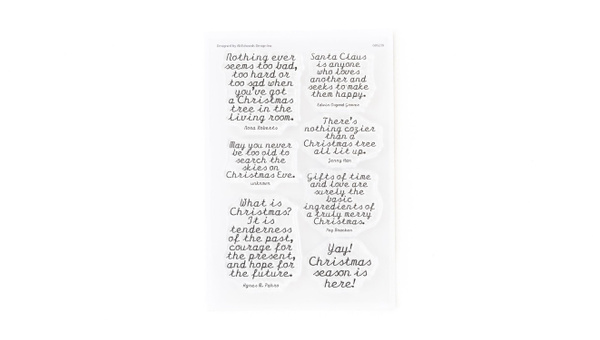 Nothing ever
seems too bad,
too hard or
too sad when
you've got
a Christmas
tree in the
living room.
Nora Roberts
May you never
be too old to
search the
skies on
Christmas Eve.
unknown
What is
Christmas?
It is
tenderness
of the past,
courage for
the present,
and hope for
the future.
Agnes M. Pahro
Santa Claus
is anyone
who loves
another and
seeks to make
them happy.
Edwin Osgood Grover
There's
nothing cozier
than a
Christmas tree
all lit up.
Jenny Han
Gifts of time
and love are
surely the
basic
ingredients of
a truly merry
Christmas.
Peg Bracken
Yay!
Christmas
season is
here!